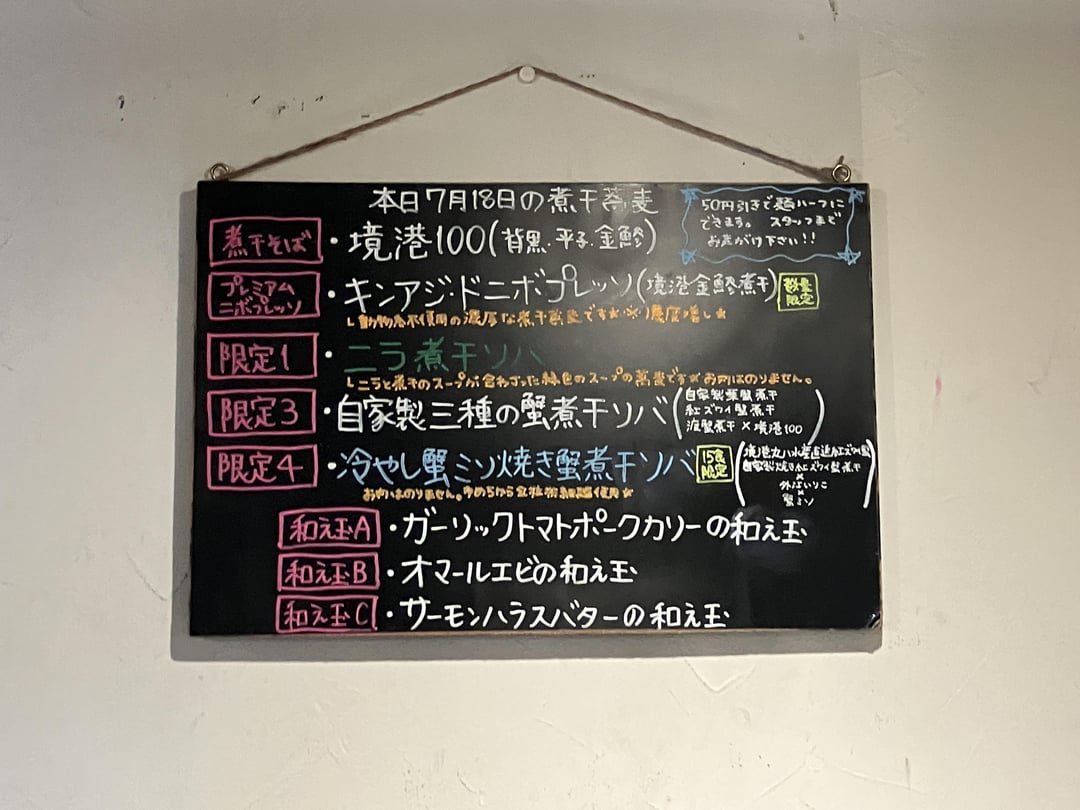 本日7月18日の煮干蕎麦
50円引きで麺ハーフに
できます。 スタッフまで
お声がけ下さい!!
煮干そば ・境港100(背黒・平子・金鯵)
プレミアム
ニボプレッソ ・キンアジ・ドニボプレッソ(境港金鯵煮干) 数量
限定
動物系不使用の濃厚な煮干蕎麦です
限定1 ・ニラ煮干ソバ
ニラと煮干のスープが合わさった緑色のスープの蕎麦です お肉はのりません。
限定3 ・自家製三種の蟹煮干ソバ
紅ズワイ蟹煮干
渡蟹煮干×境港100
限定4 ・冷やし蟹ミソ焼き蟹煮干ソバ 15食
限定
自家製焼き紅ズワイ蟹煮干
×
×
蟹ミソ
お肉はのりません。
和え玉A ・ガーリックトマトポークカリーの和え玉
和え玉B ・オマールエビの和え玉
和え玉C ・サーモンハラスバターの和え玉